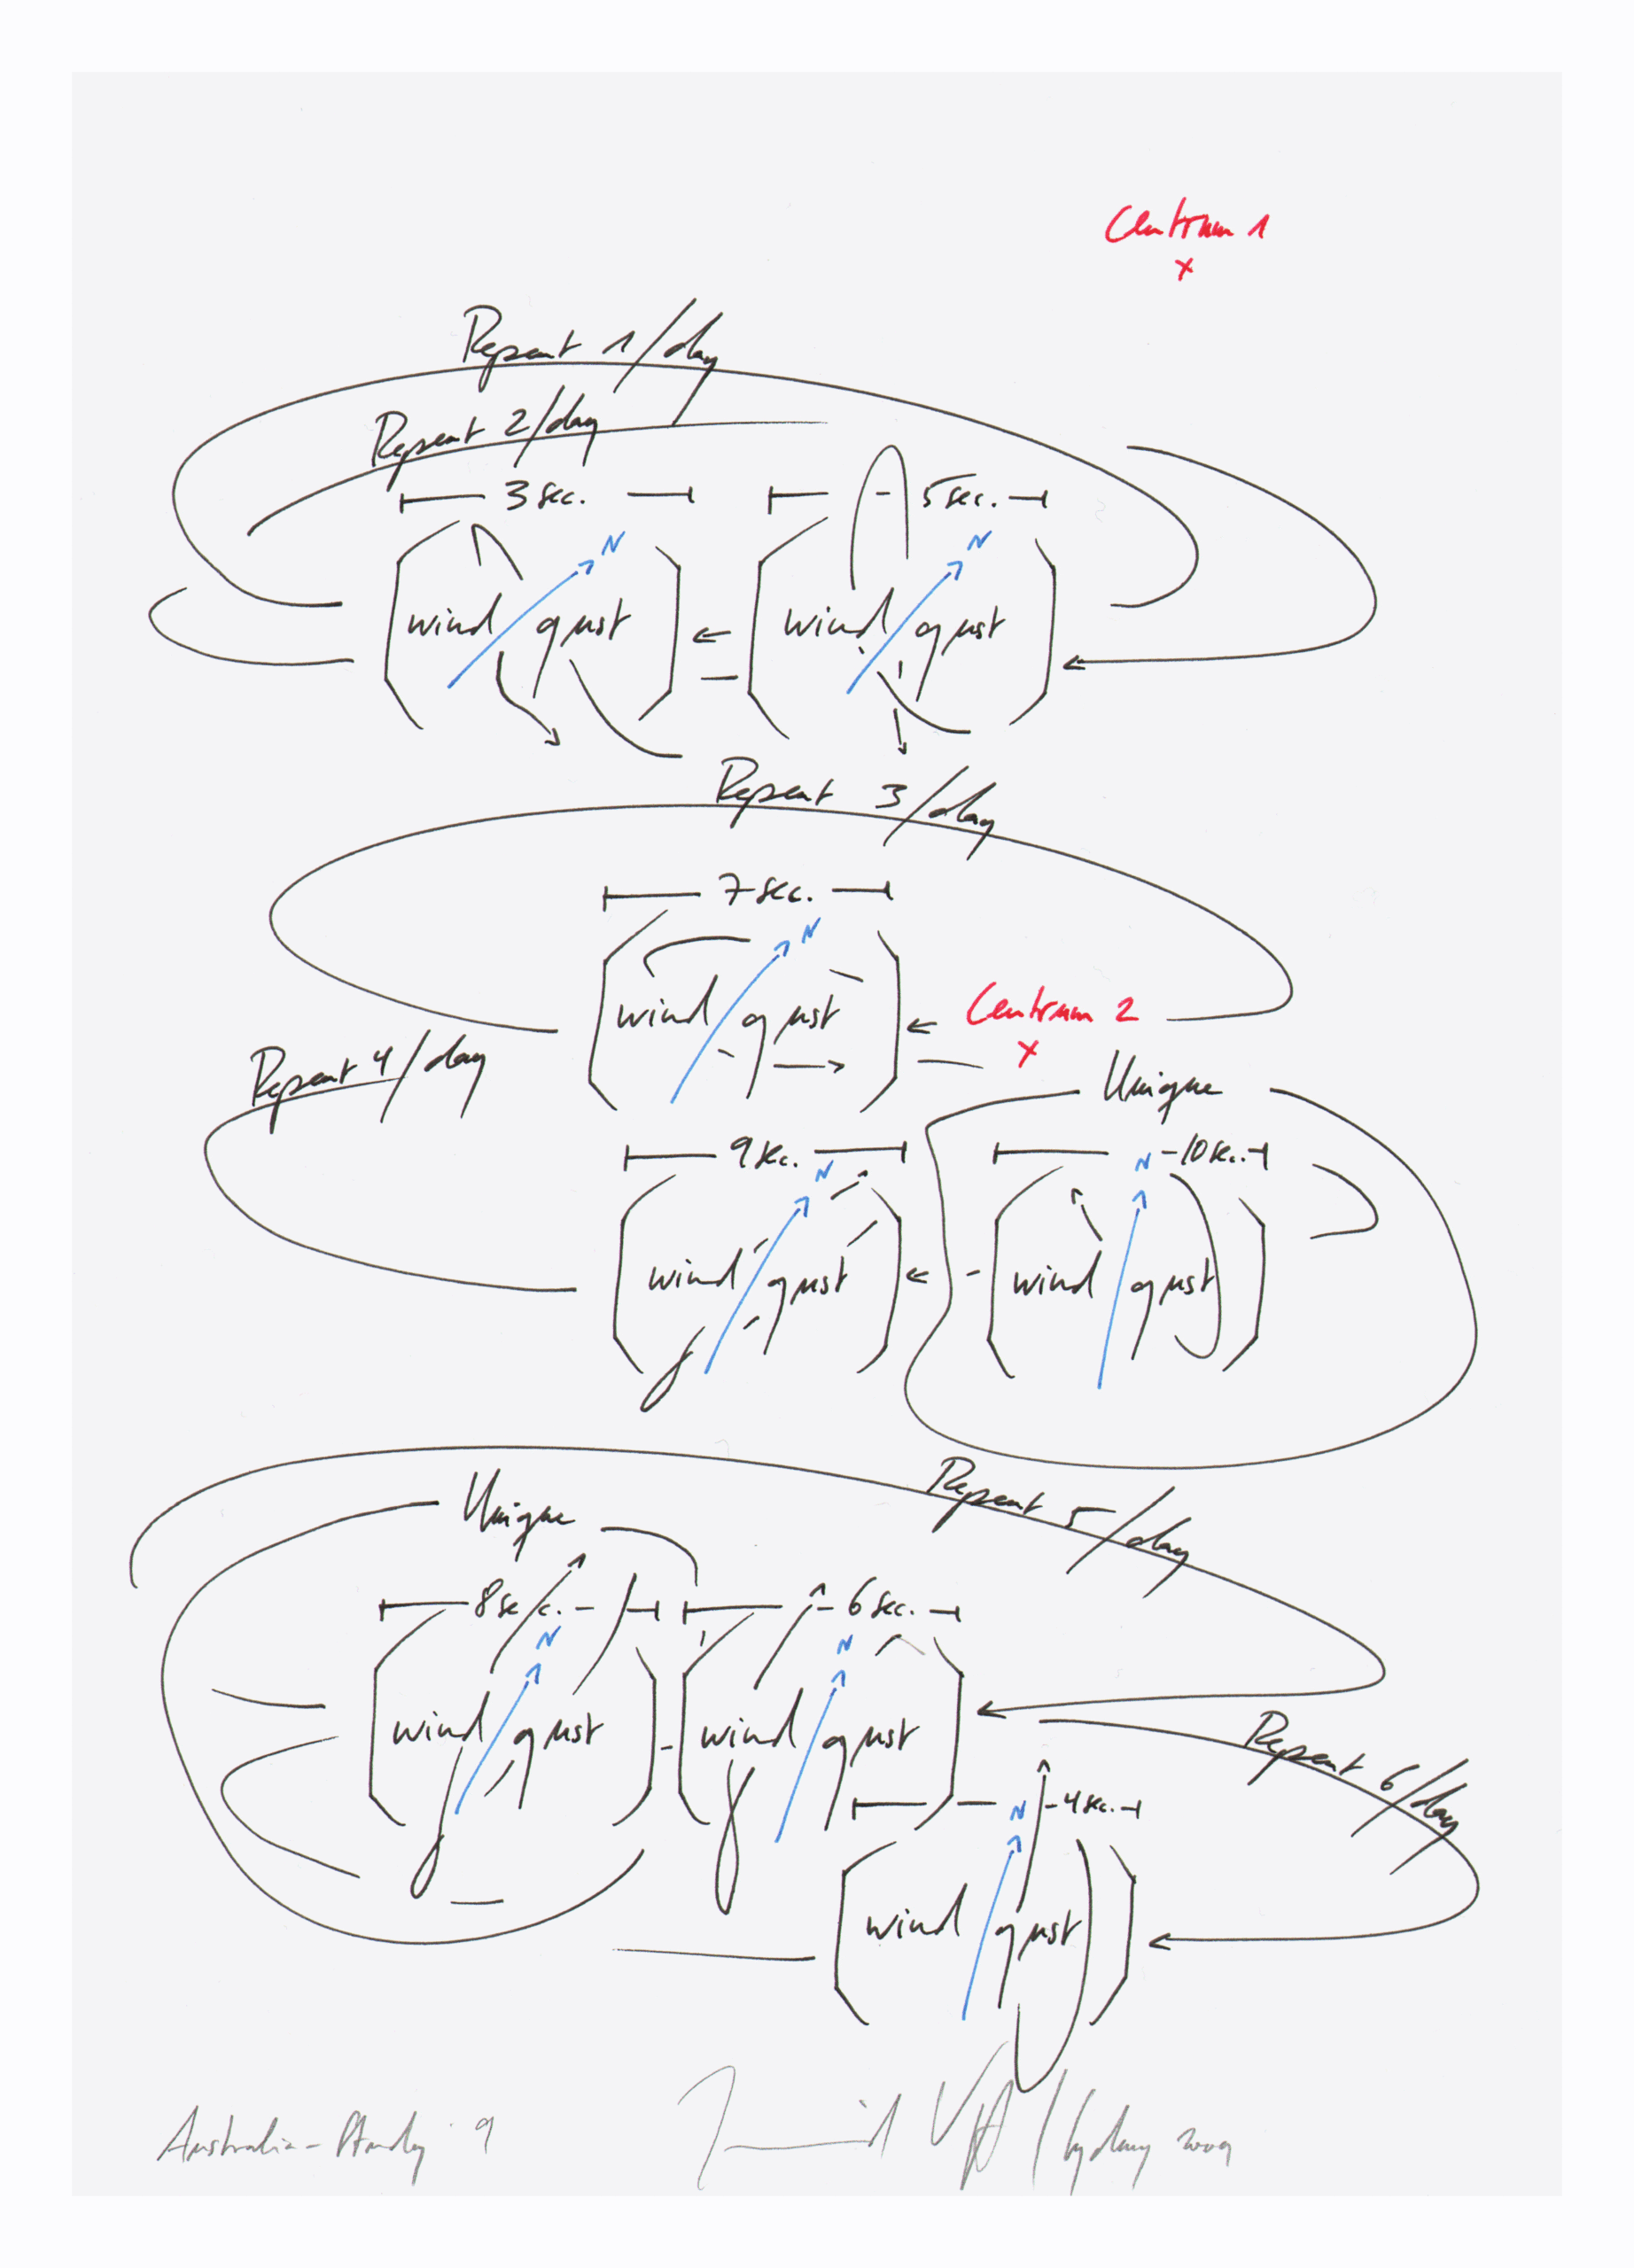 Centrum 1
x
Repeat 1/day
Repeat 2/day
3 sec. 5 sec.
N N
wind gust wind gust
Repeat 3/day
7 sec.
N
wind gust
Centrum 2
x
Repeat 4/day
Unique
9 sec. 10 sec.
N N
wind gust wind gust
Repeat 5/day
Unique
8 sec. 6 sec.
N N
wind gust wind gust
Repeat 6/day
4 sec.
N
wind gust
Australia-Study 9
/ Sydney 2009